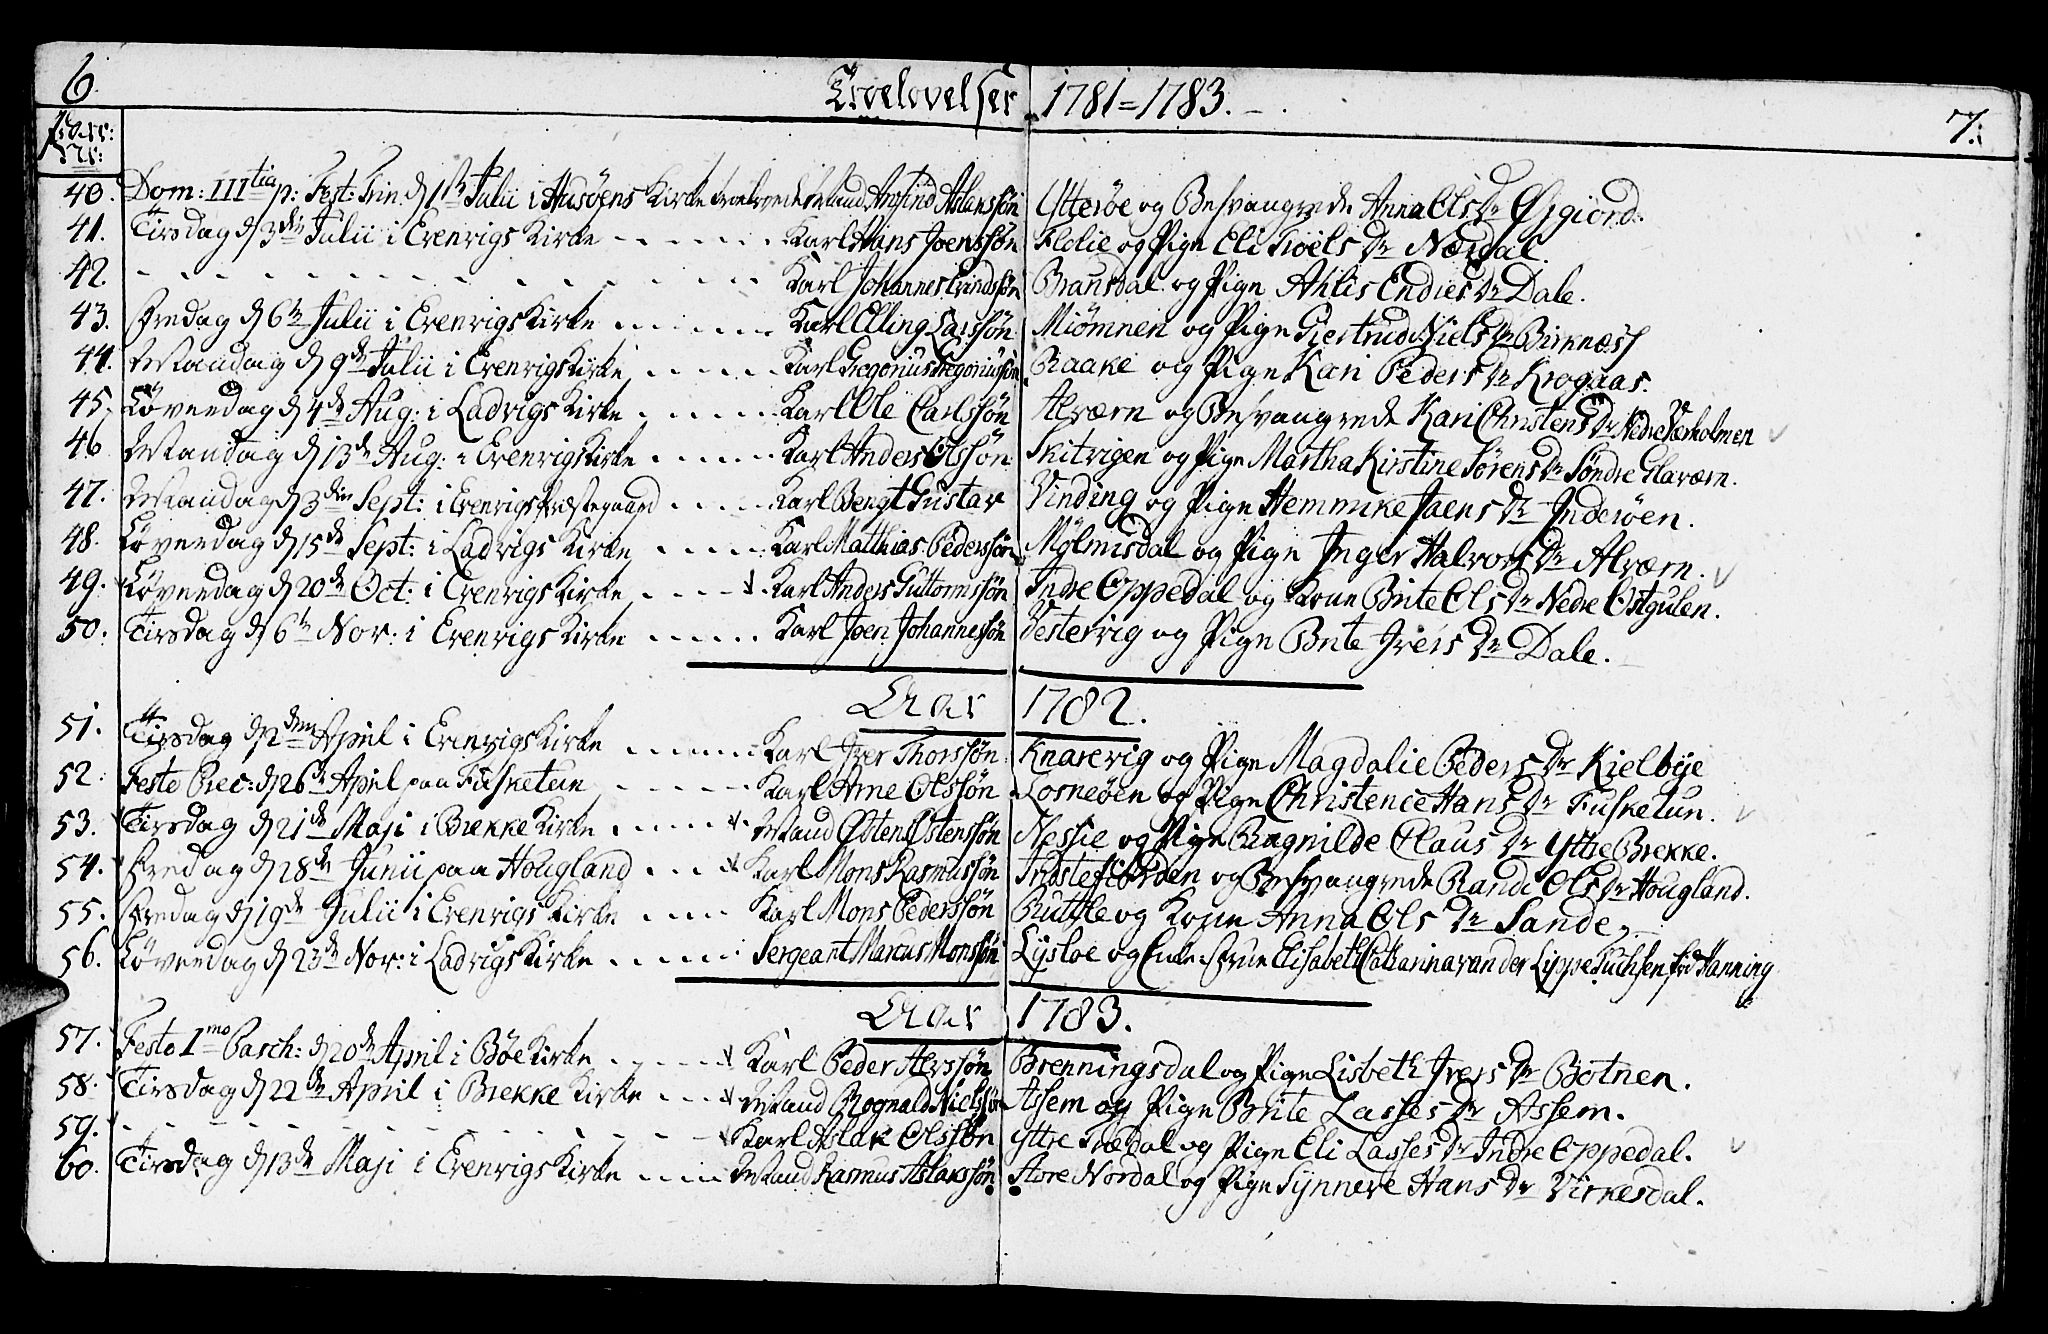 6. Troelovelser 1781=1783. 7.
Parr: Nr:
40. Dom: III tia p: Fest: Trin. d 1ste Julii i Husøens Kirke troelovede Mand Ansind Aslanssøn Ytterøe og Besvangrede Anna Ols Dr Øygiord.
41. Tirsdag d 3die Julii i Evenvigs Kirke - - - - - Karl Hans Joenssøn Flolie og Pige Eli Troels Dr Nordal.
42. - - - - - Karl Johannes Erindssøn Bransdal og Pige Ahlis Endres Dr Dale.
43. Fredag d 6te Julii i Evenvigs Kirke - - - - - Karl Elling Larssøn Miømnen og Pige Giertrud Niels Dr Birknæss
44. Mandag d 9de Julii i Evenvigs Kirke - - - - - Karl Gregorius Gregoriussøn Baake og Pige Kari Peders Dr Krogaas.
45. Løverdag d 4de Aug: i Ladvigs Kirke - - - - - Karl Ole Carlssøn Alværn og Besvangrede Kari Christens Dr Nedre Værholmen
46 Mandag d 13de Aug: i Evenvigs Kirke - - - - - Karl Anders Olssøn Skitvigen og Pige Martha Kirstine Sørens Dr Søndre Glaværn.
47. Mandag d 3den Sept: i Evenvigs Præstegaard - - - - Karl Bengt Gustav Vinding og Pige Hemmike Jaens Dr Inderøen.
48. Løverdag d 15de Sept: i Ladvigs Kirke - - - - Karl Matthias Pederssøn Mølmisdal og Pige Inger Halvors Dr Alværn.
49. Løverdag d 20de Oct: i Evenvigs Kirke - - - - Karl Anders Guttormssøn Indre Oppedal og Kone Brite Ols Dr Nedre Østgulen.
50. Tirsdag d 6te Nov: i Evenvigs Kirke - - - - - Karl Joen Johannessøn Vestervig og Pige Brite Ivers Dr Dale.
Aar 1782.
51. Tirsdag d 2den April i Evenvigs Kirke - - - - - Karl Iver Thorssøn Knarevig og Pige Magdalie Peders Dr Kielbye
52. Festo Prec: d 26de April paa Fusketun - - - - - Karl Arne Olssøn Losneøen og Pige Christence Hans Dr Fusketun.
53. Tirsdag d 21de Maji i Brekke Kirke - - - - Mand Østen Østenssøn Nessie og Pige Ragnilde Claus Dr Yttre Brekke.
54. Fredag d 28de Junii paa Hougland - - - Karl Mons Rasmussøn Indstefiorden og Besvangrede Randi Ols Dr Hougland.
55. Fredag d 19de Julii i Evenvigs Kirke - - - - Karl Mons Pederssøn Rutle og Kone Anna Ols Dr Sande,
56. Løverdag d 23de Nov: i Ladvigs Kirke - - - - - Sergeant Marcus Monssøn Lysloe og Enke Frue Elisabeth Catharina van der Lippe Tuchsen fød Hanning
Aar 1783.
57. Festo 1mo Pasch: d 20de April i Bøe Kirke - - - - - Karl Peder Alvssøn Brenningsdal og Pige Lisbeth Ivers Dr Botnen.
58. Tirsdag d 22de April i Brekke Kirke - - - Mand Rognald Nielssøn Assem og Pige Brite Lasses Dr Assem.
59. - - - - - Karl Aslak Olssøn Yttre Trædal og Pige Eli Lasses Dr Indre Oppedal.
60. Tirsdag d 13de Maji i Evenvigs Kirke - - - - - Mand Rasmus Aslakssøn Store Nordal og Pige Synneve Hans Dr Virkesdal.